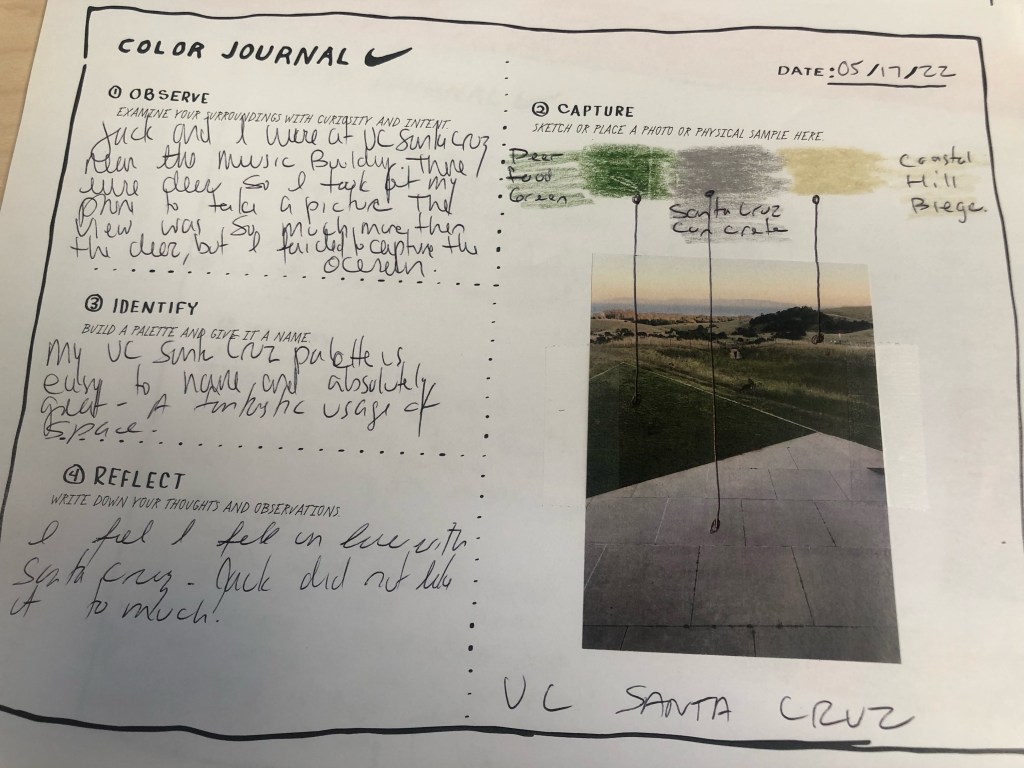 COLOR JOURNAL
DATE: 05/17/22
① OBSERVE
EXAMINE YOUR SURROUNDINGS WITH CURIOSITY AND INTENT.
Jack and I were at UC Santa Cruz
near the Music Building. There
were deer so I took out my
phone to take a picture The
view was so much more then
the deer, but I failed to capture the
② CAPTURE
SKETCH OR PLACE A PHOTO OR PHYSICAL SAMPLE HERE.
Deer
food
Green
Santa Cruz
Coastal
Hill
③ IDENTIFY
BUILD A PALETTE AND GIVE IT A NAME.
My UC Santa Cruz palette is
easy to name and absolutely
great - A fantastic usage of
space.
④ REFLECT
WRITE DOWN YOUR THOUGHTS AND OBSERVATIONS
I feel I fell in love with
Santa Cruz - Jack did not like
it to much!
UC SANTA CRUZ